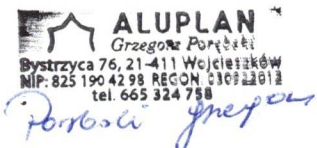 ALUPLAN
Grzegorz Porębski
Bystrzyca 76, 21-411 Wojcieszków
NIP: 825 190 42 98 REGON: 030822013
tel. 665 324 758
Porębski Grzegorz